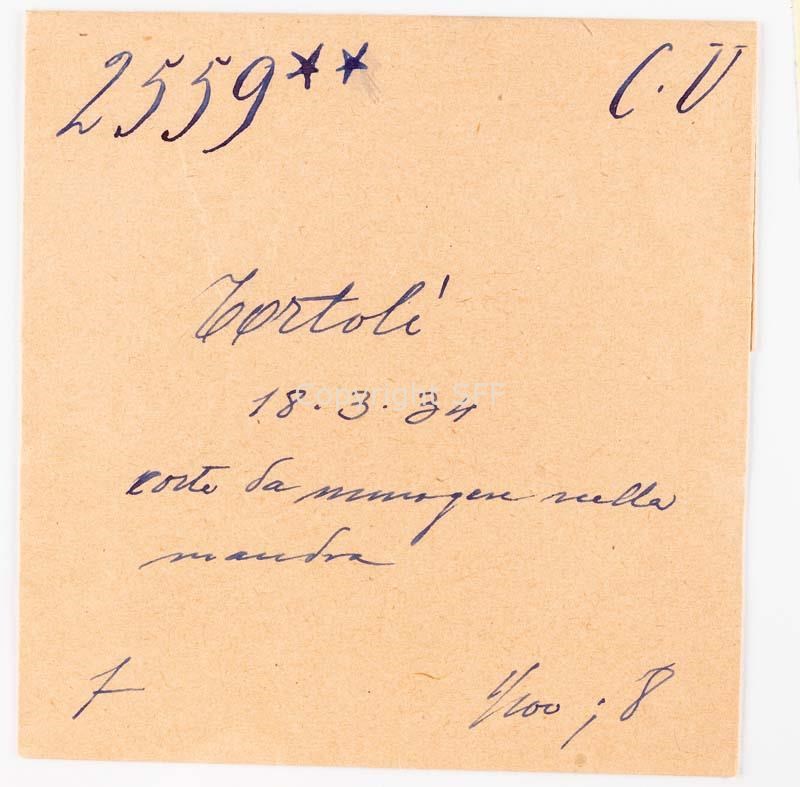 2559** C.V
Tortolì
18.3.34
corte da mungere nella
mandra
7 1/100 ; 8
Copyright SFF